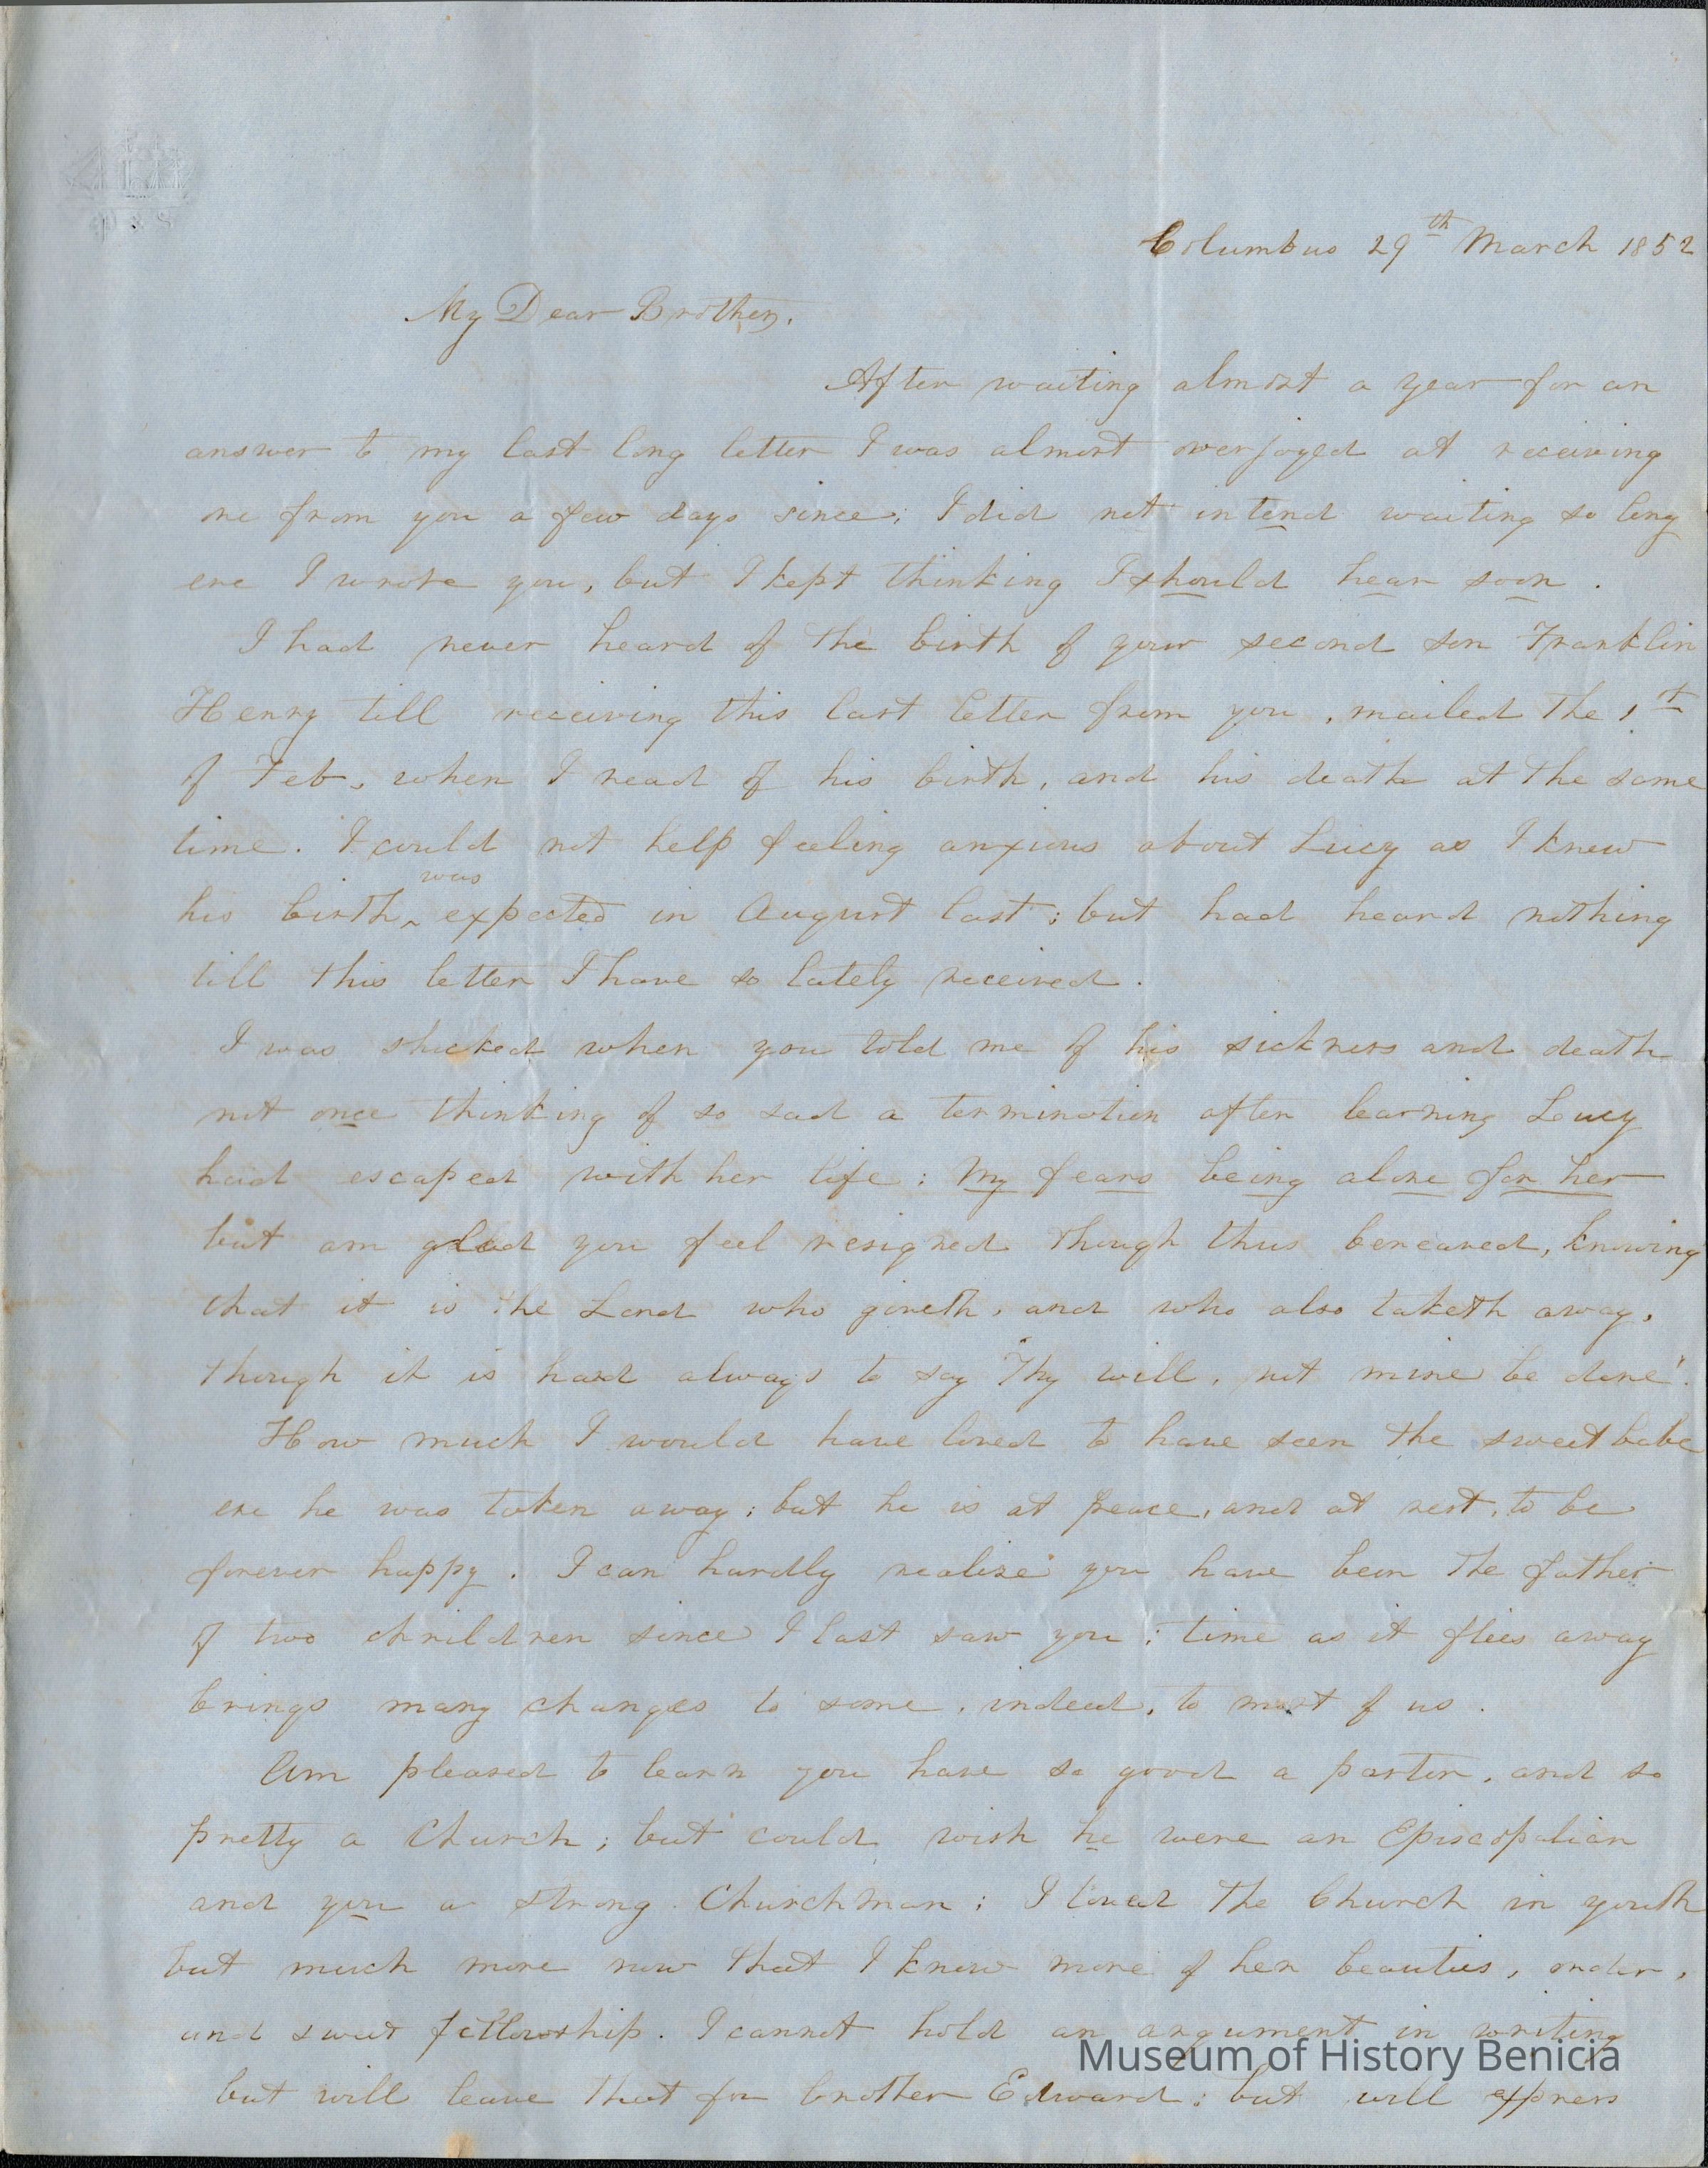 Columbus 29th March 1852
My Dear Brother,
After waiting almost a year for an
answer to my last long letter I was almost overjoyed at receiving
one from you a few days since; I did not intend waiting so long
ere I wrote you, but I kept thinking I should hear soon.
I had never heard of the birth of your second son Franklin
Henry till receiving this last letter from you, mailed the 1st
of Feb, when I read of his birth, and his death at the same
time. I could not help feeling anxious about Lucy as I knew
was
his birth ^ expected in August last; but had heard nothing
till this letter I have so lately received.
I was shocked when you told me of his sickness and death
not once thinking of so sad a termination after learning Lucy
had escaped with her life; my fears being alone for her
but am glad you feel resigned though thus bereaved, knowing
that it is the Lord who giveth, and who also taketh away,
though it is hard always to say "Thy will, not mine be done".
How much I would have loved to have seen the sweet babe
ere he was taken away; but he is at peace, and at rest, to be
forever happy. I can hardly realise you have been the father
of two children since I last saw you; time as it flies away
brings many changes to some, indeed, to most of us.
Am pleased to learn you have so good a pastor, and so
pretty a Church; but could wish he were an Episcopalian
and you a strong Churchman; I loved the Church in youth
but much more now that I know more of her beauties, order,
and sweet fellowship. I cannot hold an argument in writing
but will leave that for brother Edward; but will express
Museum of History Benicia